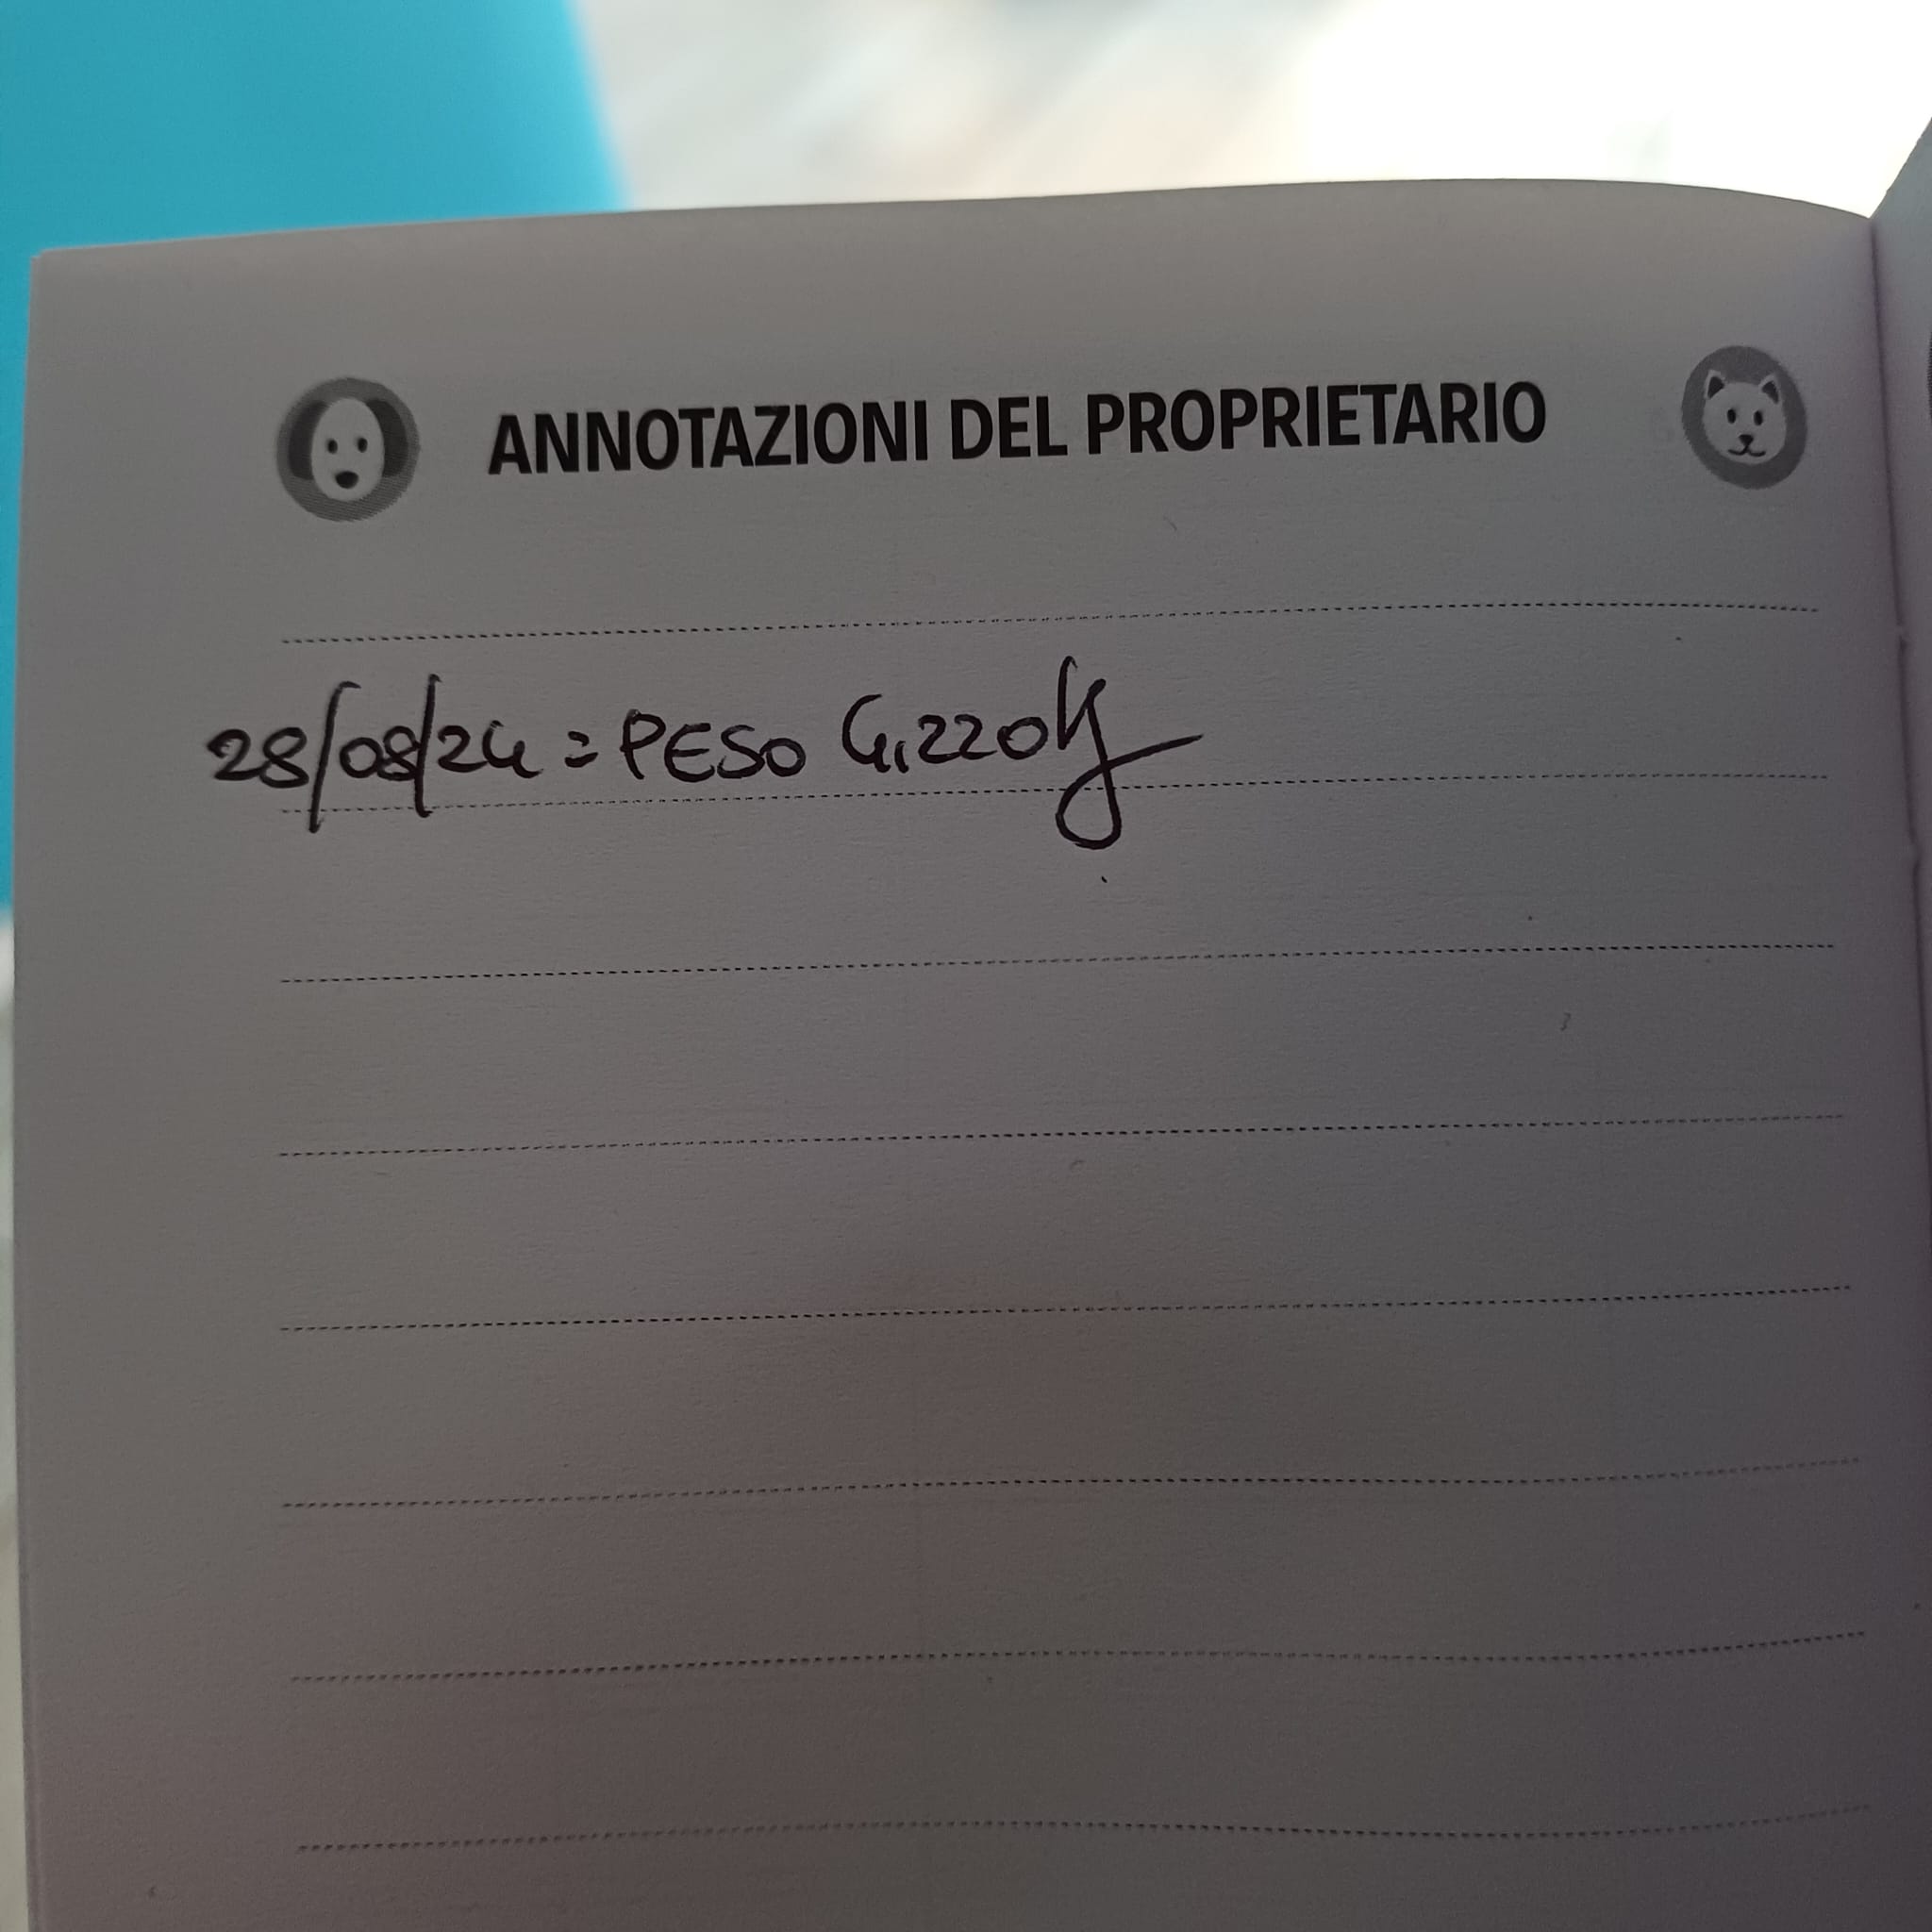 ANNOTAZIONI DEL PROPRIETARIO
28/08/24 = PESO 4,220kg